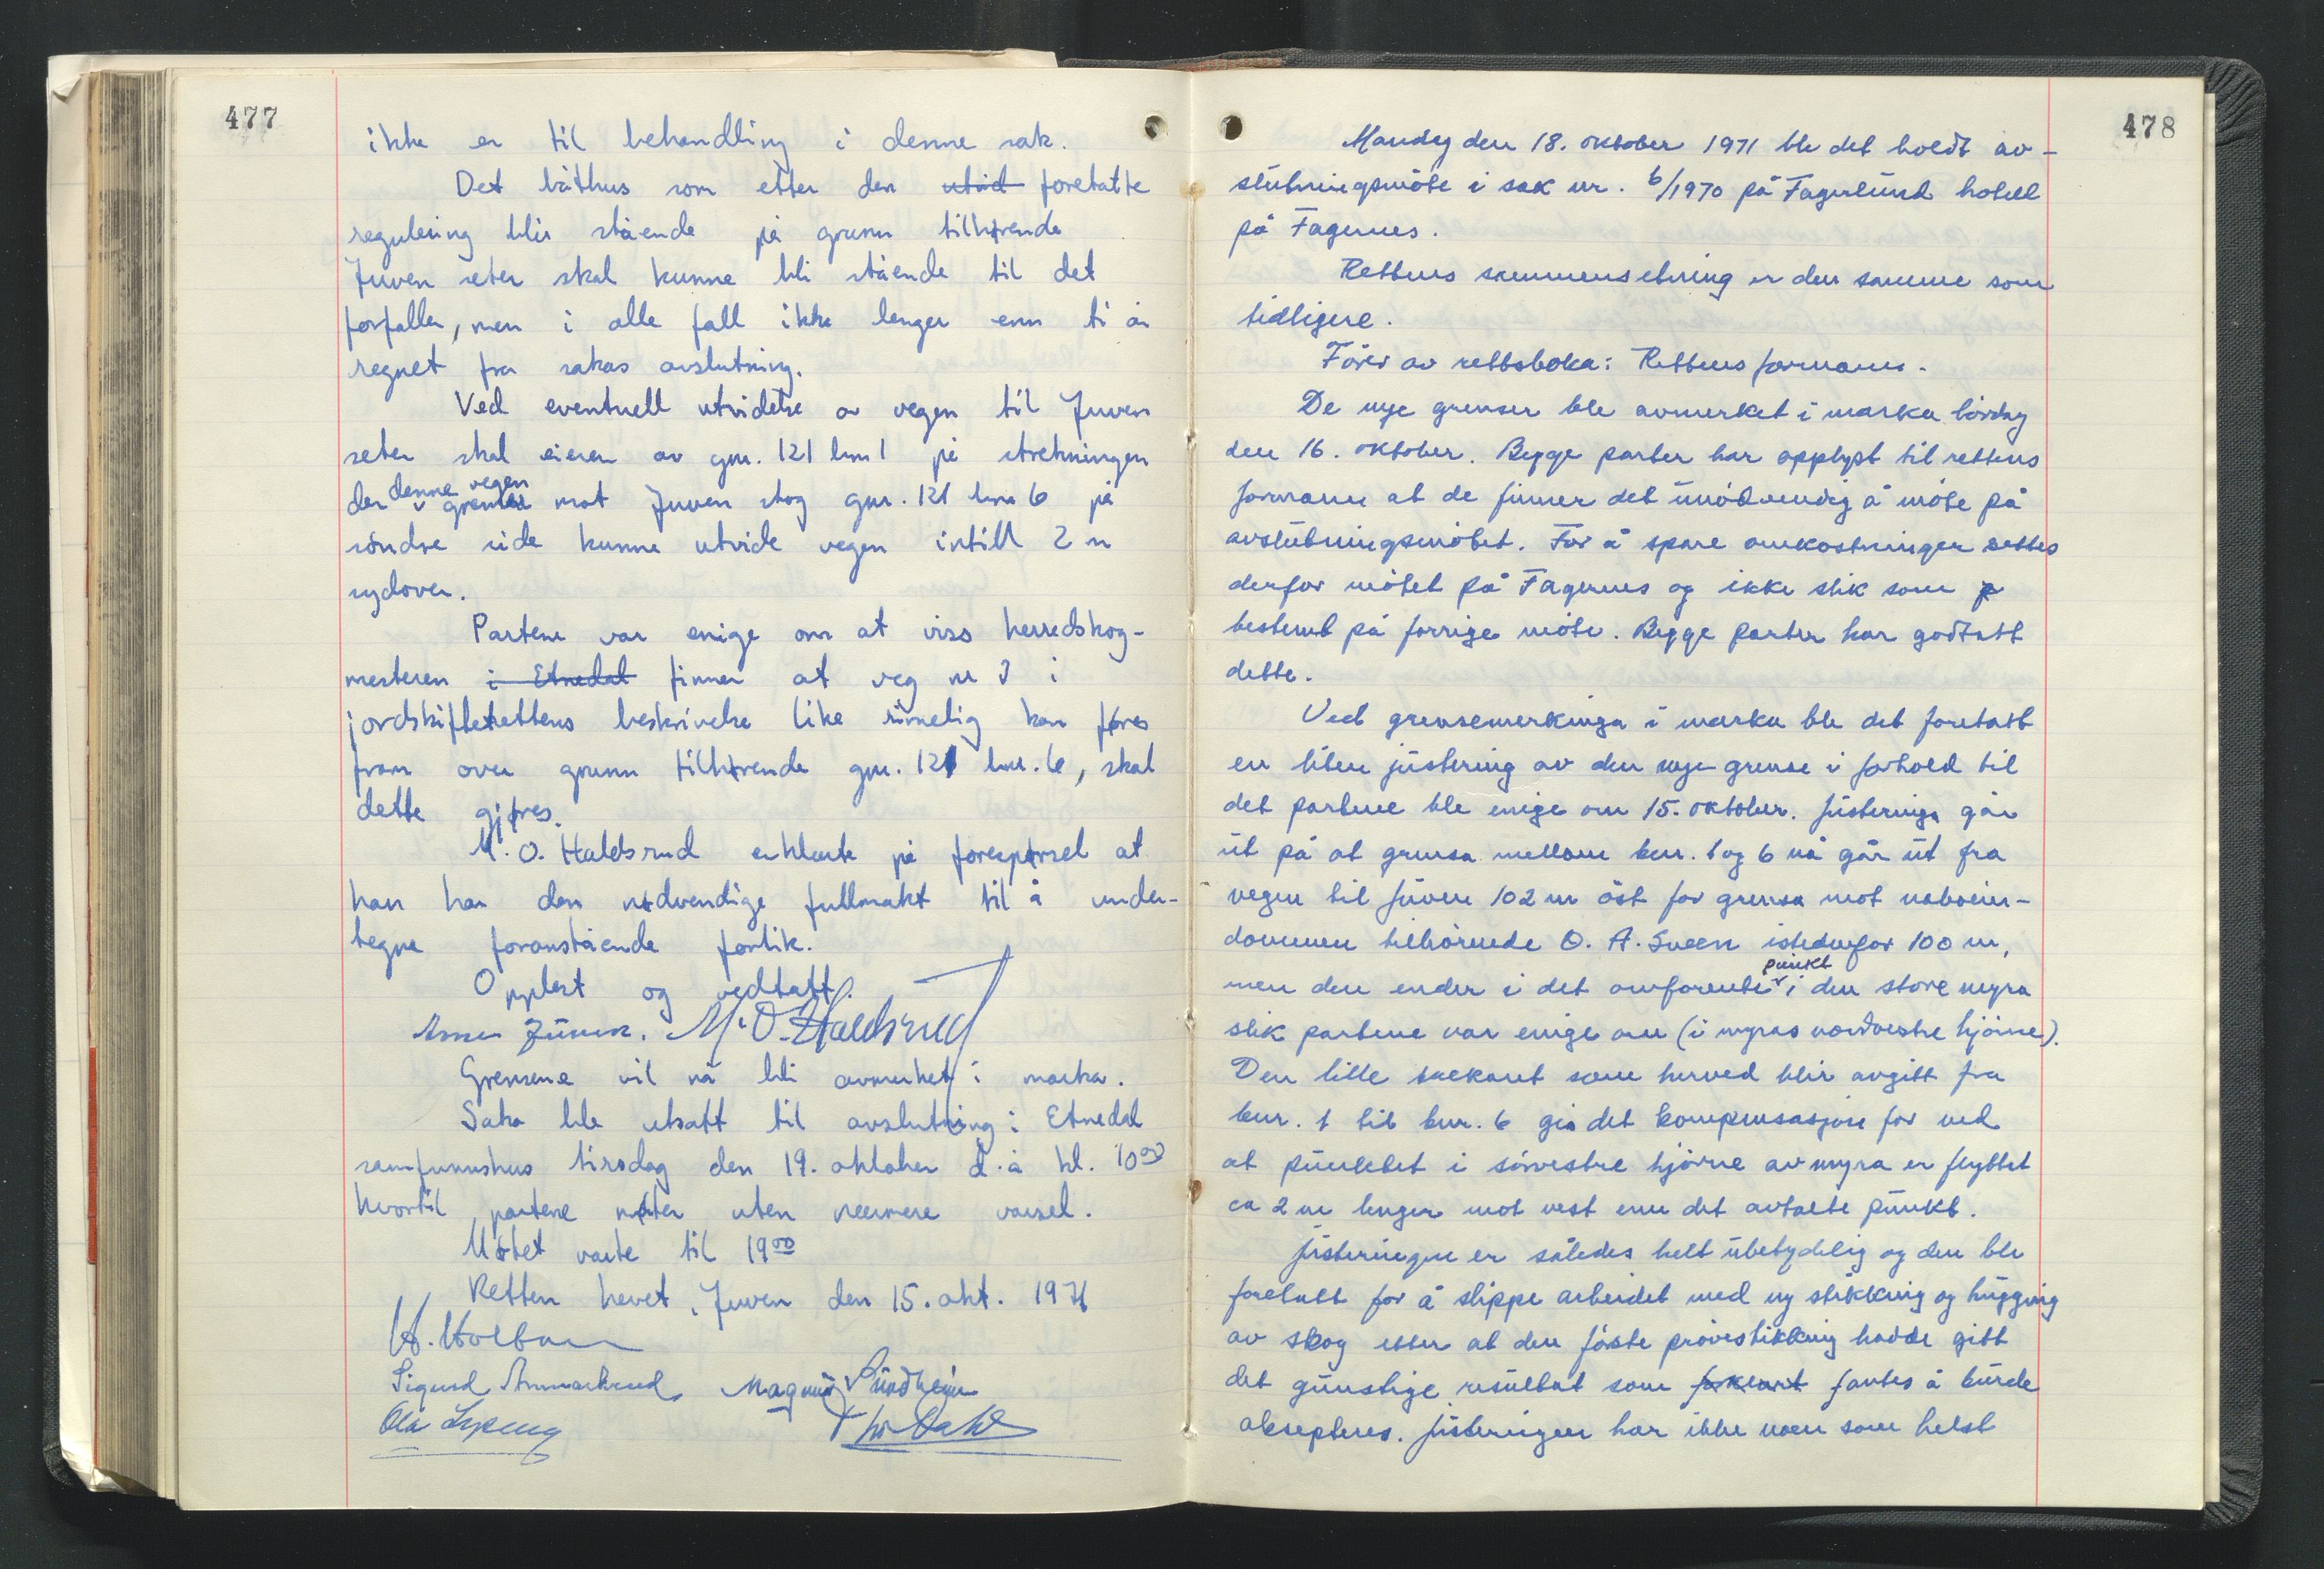 477
ikke er til behandling i denne sak.
Det båthus som etter den utvid foretatte
regulering blir stående på grunn tilhørende
Juven seter skal kunne bli stående til det
forfaller, men i alle fall ikke lenger enn ti år
regnet fra sakas avslutning.
Ved eventuell utvidelse av vegen til Juven
seter skal eieren av gnr. 121 bnr 1 på strekningen
der denne vegen grenser mot Juven skog gnr. 121 bnr 6 på
søndre side kunne utvide vegen intill 2 m
sydover.
Partene var enige om at viss herredskog-
mesteren i Etnedal finner at veg nr 3 i
jordskifterettens beskrivelse like rimelig kan føres
fram over grunn tilhørende gnr. 121 bnr. 6, skal
dette gjøres.
M. O. Haldsrud erklærte på forespørsel at
han har den nødvendige fullmakt til å under-
tegne foranstående forlik.
Opplest og vedtatt.
Juven. M. O. Haldsrud
Grensene vil nå bli avmerket i marka.
Saka ble utsatt til avslutning i Etnedal
samfunnshus tirsdag den 19. oktober d.å kl. 10 00
hvortil partene møter uten nærmere varsel.
Møtet varte til 19 00
Retten hevet, Juven den 15. okt. 1971
Sigurd Magnus Sundheim
Ola
478
Mandag den 18. oktober 1971 ble det holdt av-
slutningsmöte i sak nr. 6/1970 på Fagerlund hotell
på Fagernes.
Rettens sammensetning er den samme som
tidligere.
Förer av rettsboka: Rettens formann.
De nye grenser ble avmerket i marka lördag
den 16. oktober. Begge parter har opplyst til rettens
formann at de finner det unödvendig å möte på
avslutningsmötet. For å spare omkostninger settes
derfor mötet på Fagernes og ikke slik som p
bestemt på forrige möte. Begge parter har godtatt
dette.
Ved grensemerkinga i marka ble det foretatt
en liten justering av den nye grense i forhold til
det partene ble enige om 15. oktober. Justeringa går
ut på at grensa mellom bnr. 1 og 6 nå går ut fra
vegen til Juven 102 m öst for grensa mot naboeien-
dommen tilhörende O. A. Sveen istedenfor 100 m,
men den ender i det omforente punkt i den store myra
slik partene var enige om (i myras nordvestre hjörne).
Den lille trekant som herved blir avgitt fra
bnr. 1 til bnr. 6 gis det kompensasjon for ved
at punktet i sörvestre hjörne av myra er flyttet
ca 2 m lenger mot vest enn det avtalte punkt.
Justeringen er således helt ubetydelig og den ble
foretatt for å slippe arbeidet med ny stikking og hugging
av skog etter at den förste prövestikking hadde gitt
det gunstige resultat som fantes å burde
aksepteres. Justeringen har ikke noen som helst